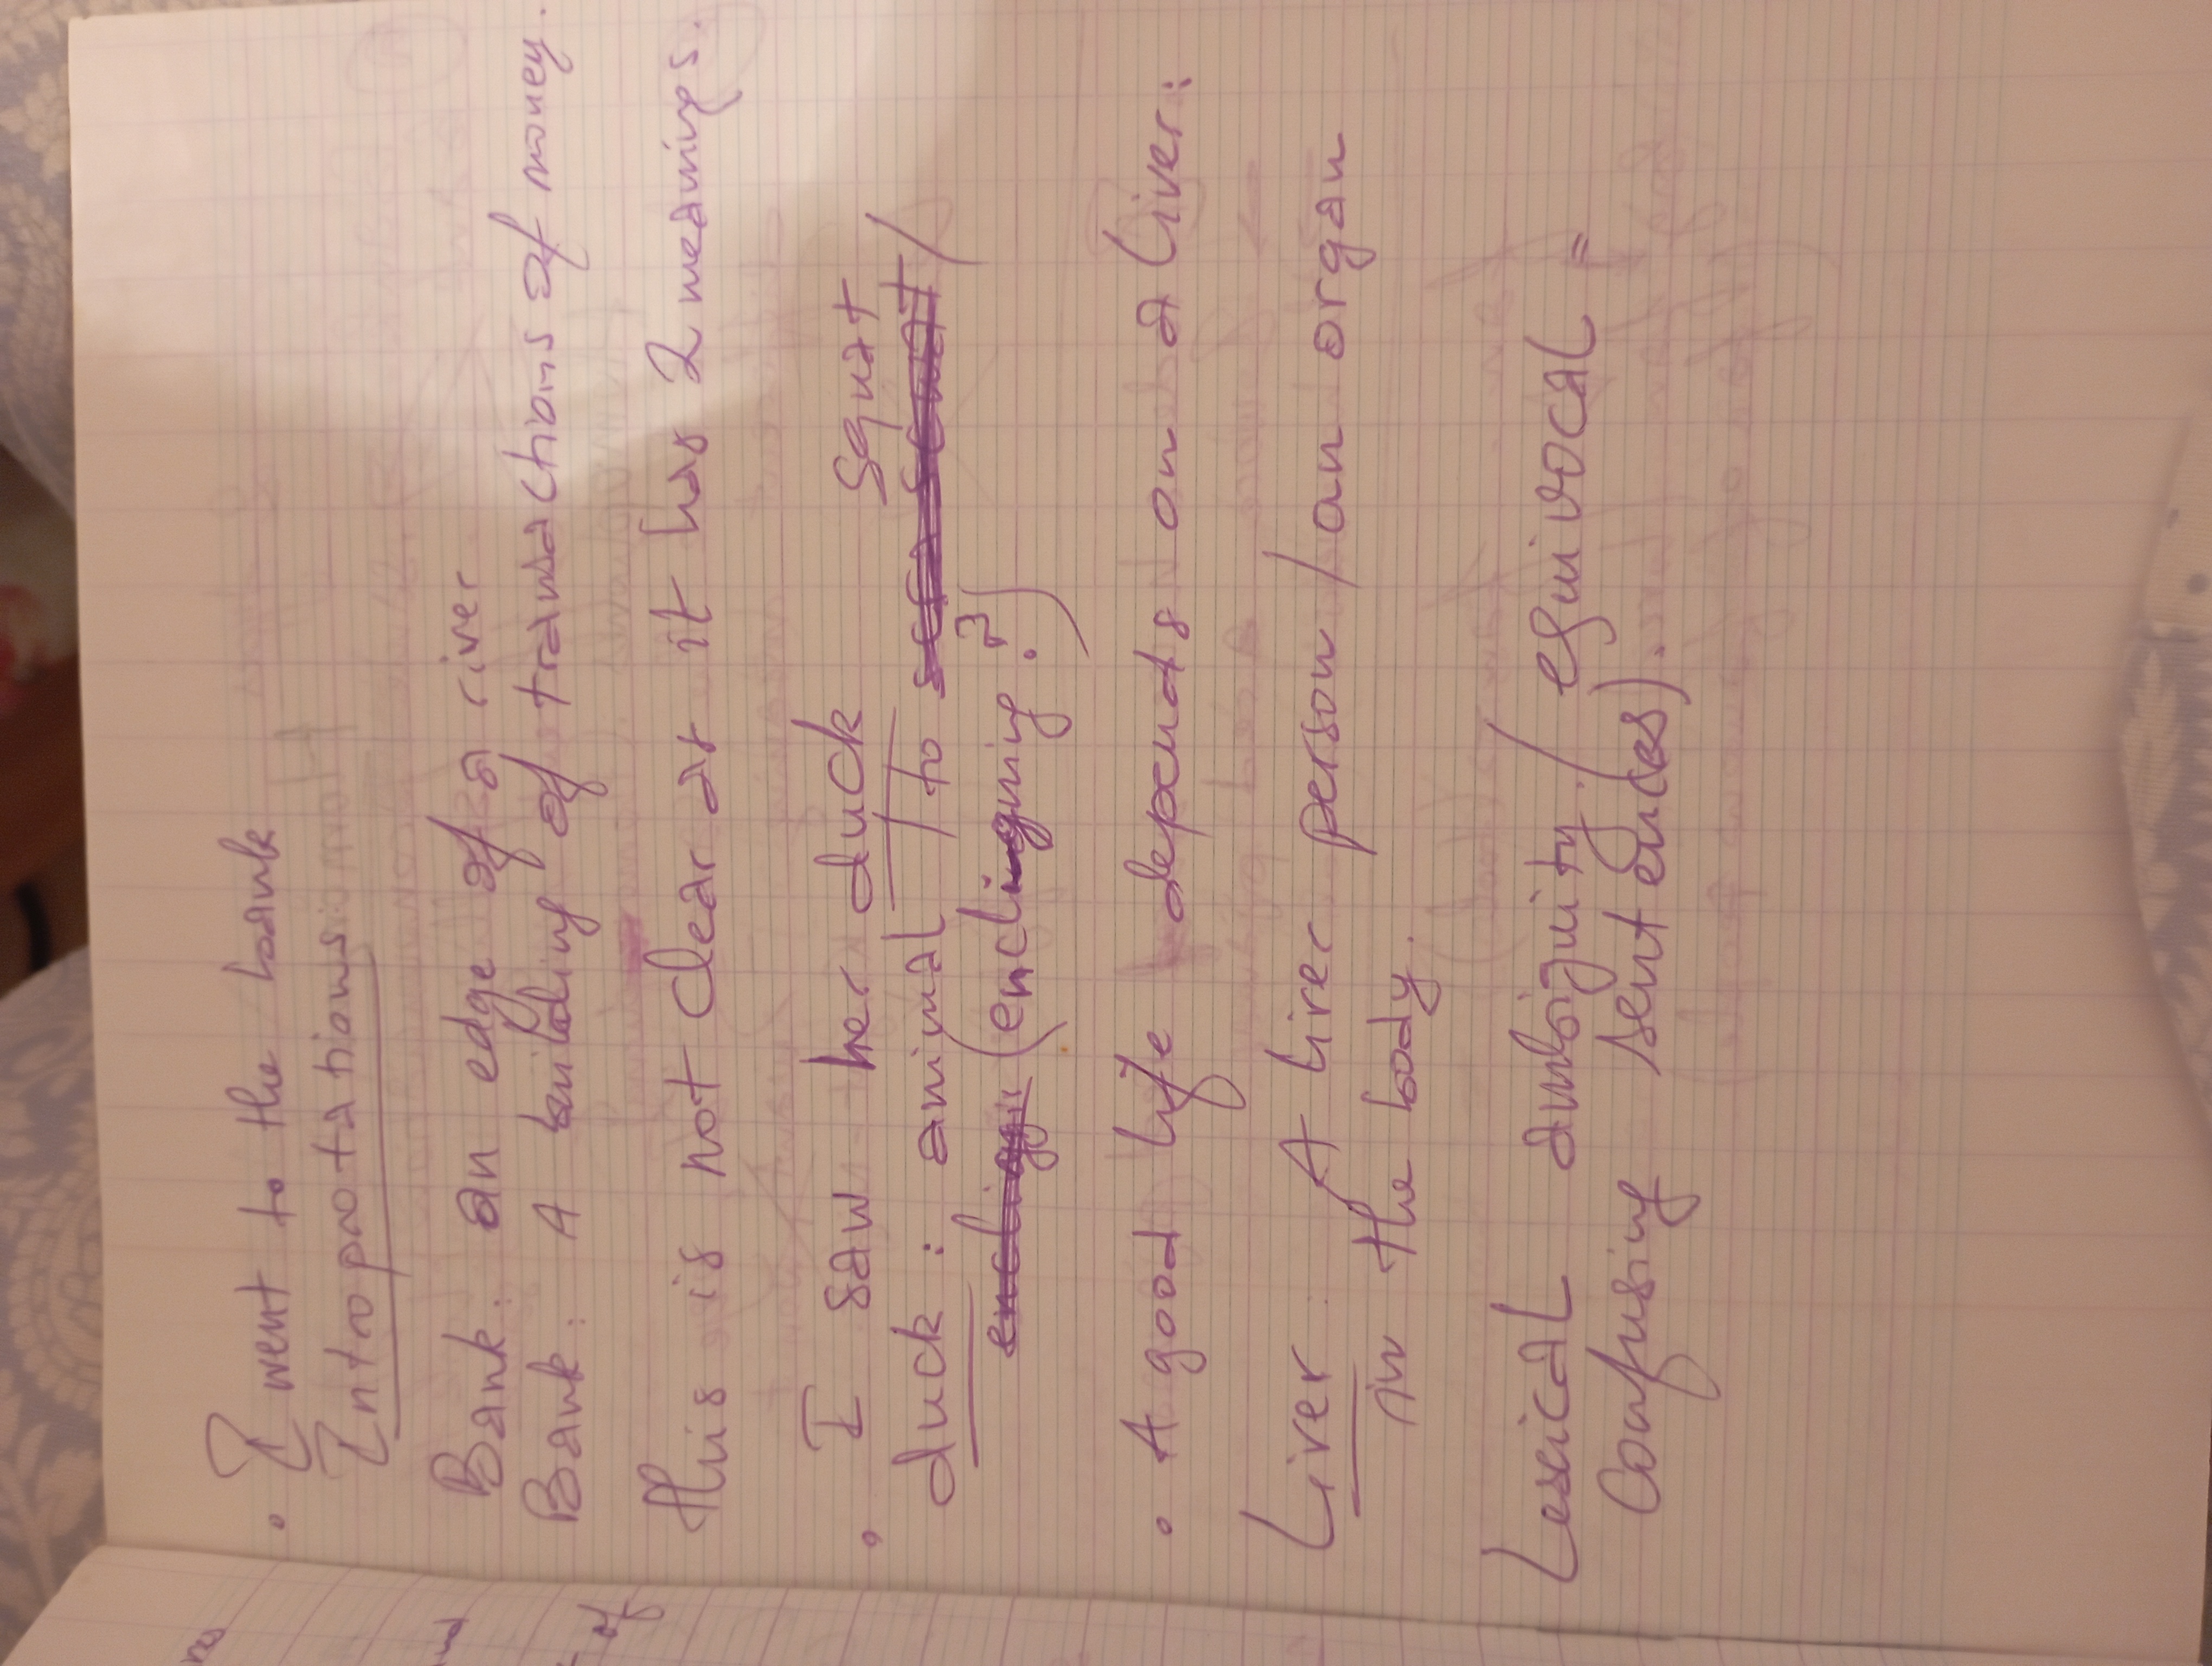 • I went to the bank
Intropratations
Bank: an edge of a river
Bank: A building of transactions of money.
this is not clear as it has 2 meanings.
• I saw her duck
squat
duck: animal / to /
(enclingning.)
• A good life depends on a liver:
Liver: A liver person / an organ
in the body.
Lexical ambiguity / equivocal =
Confusing sentences).